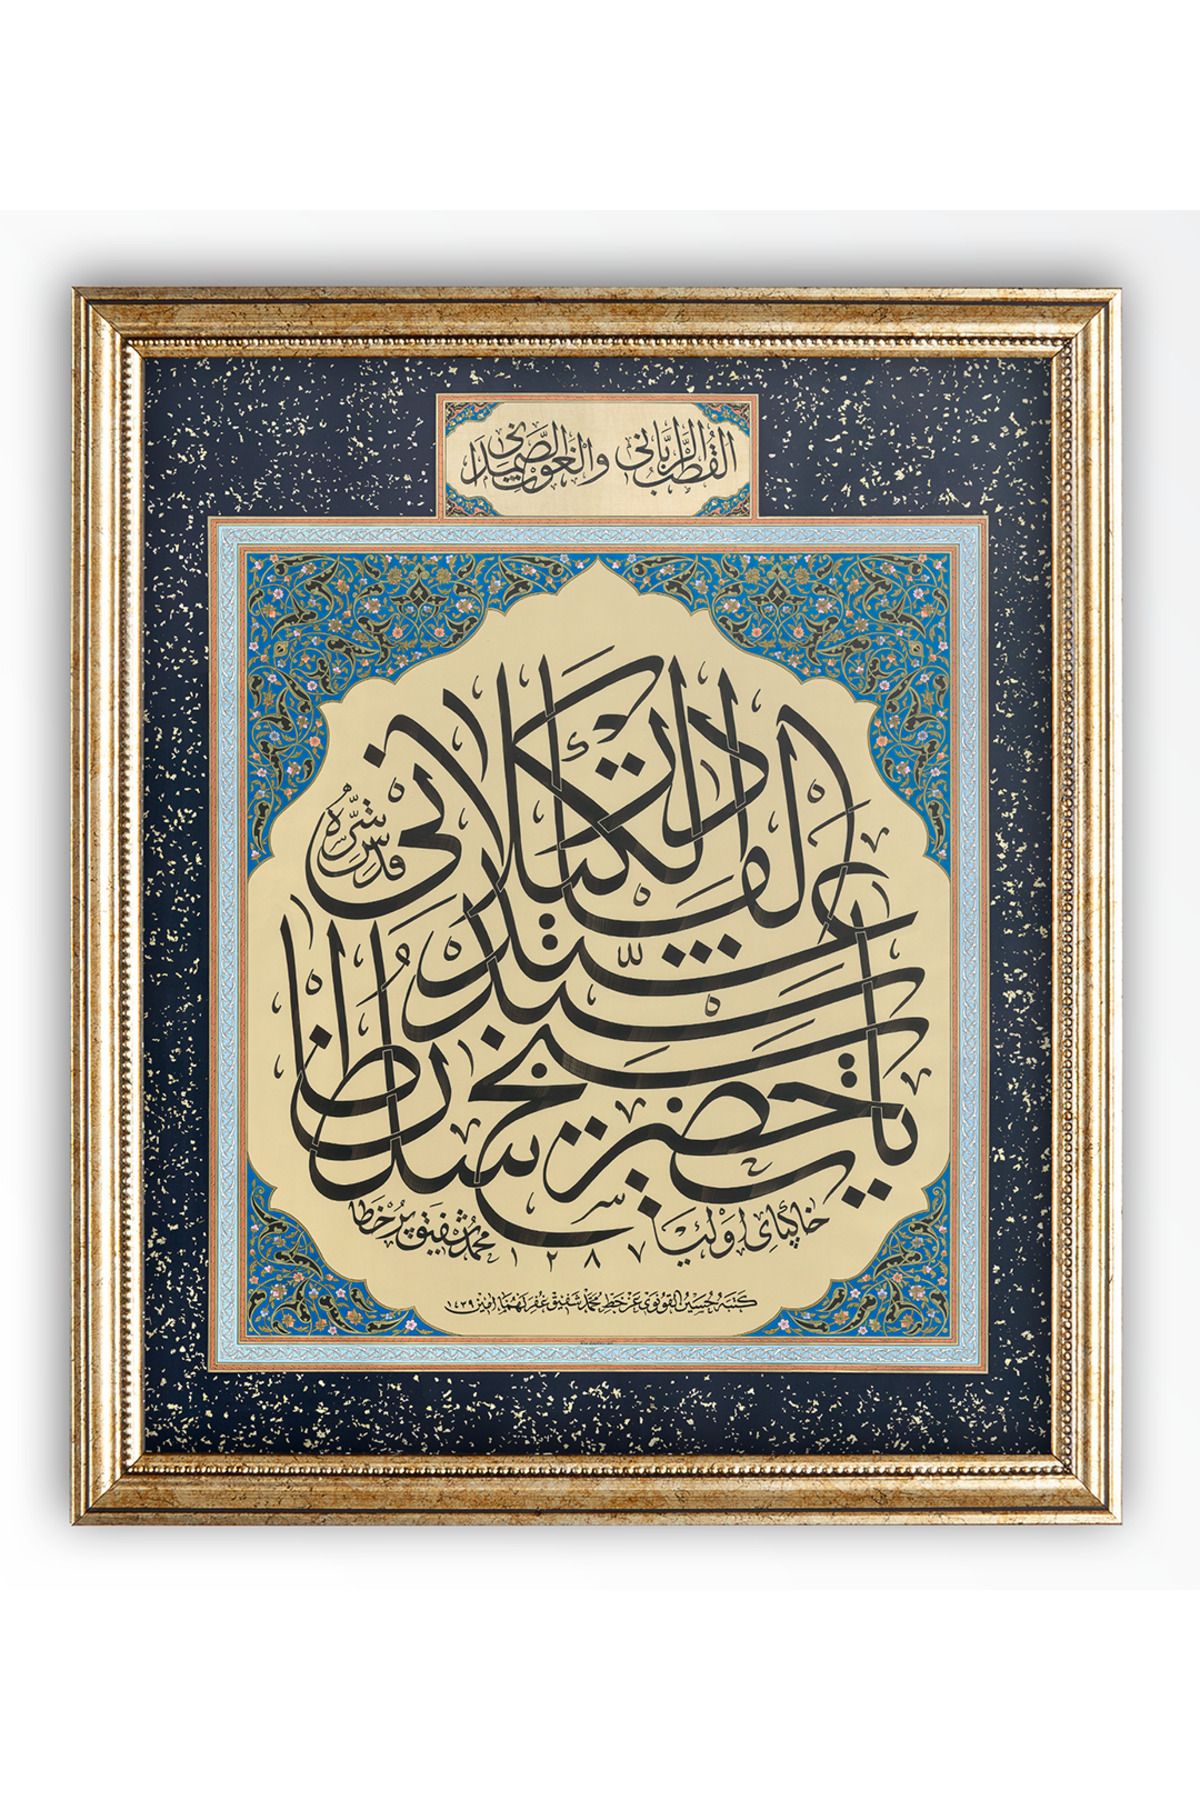 القطب الربانى والغوث الصمدانى
يا حضرت شيخ سلطان سيد عبد القادر الكيلانى
قدس سره
خاكپاى اوليا محمد شفيق پر خطا
١٢٨٧
كتبه حسين القونوى عن خط محمد شفيق غفر لهما امين ١٤٣٩